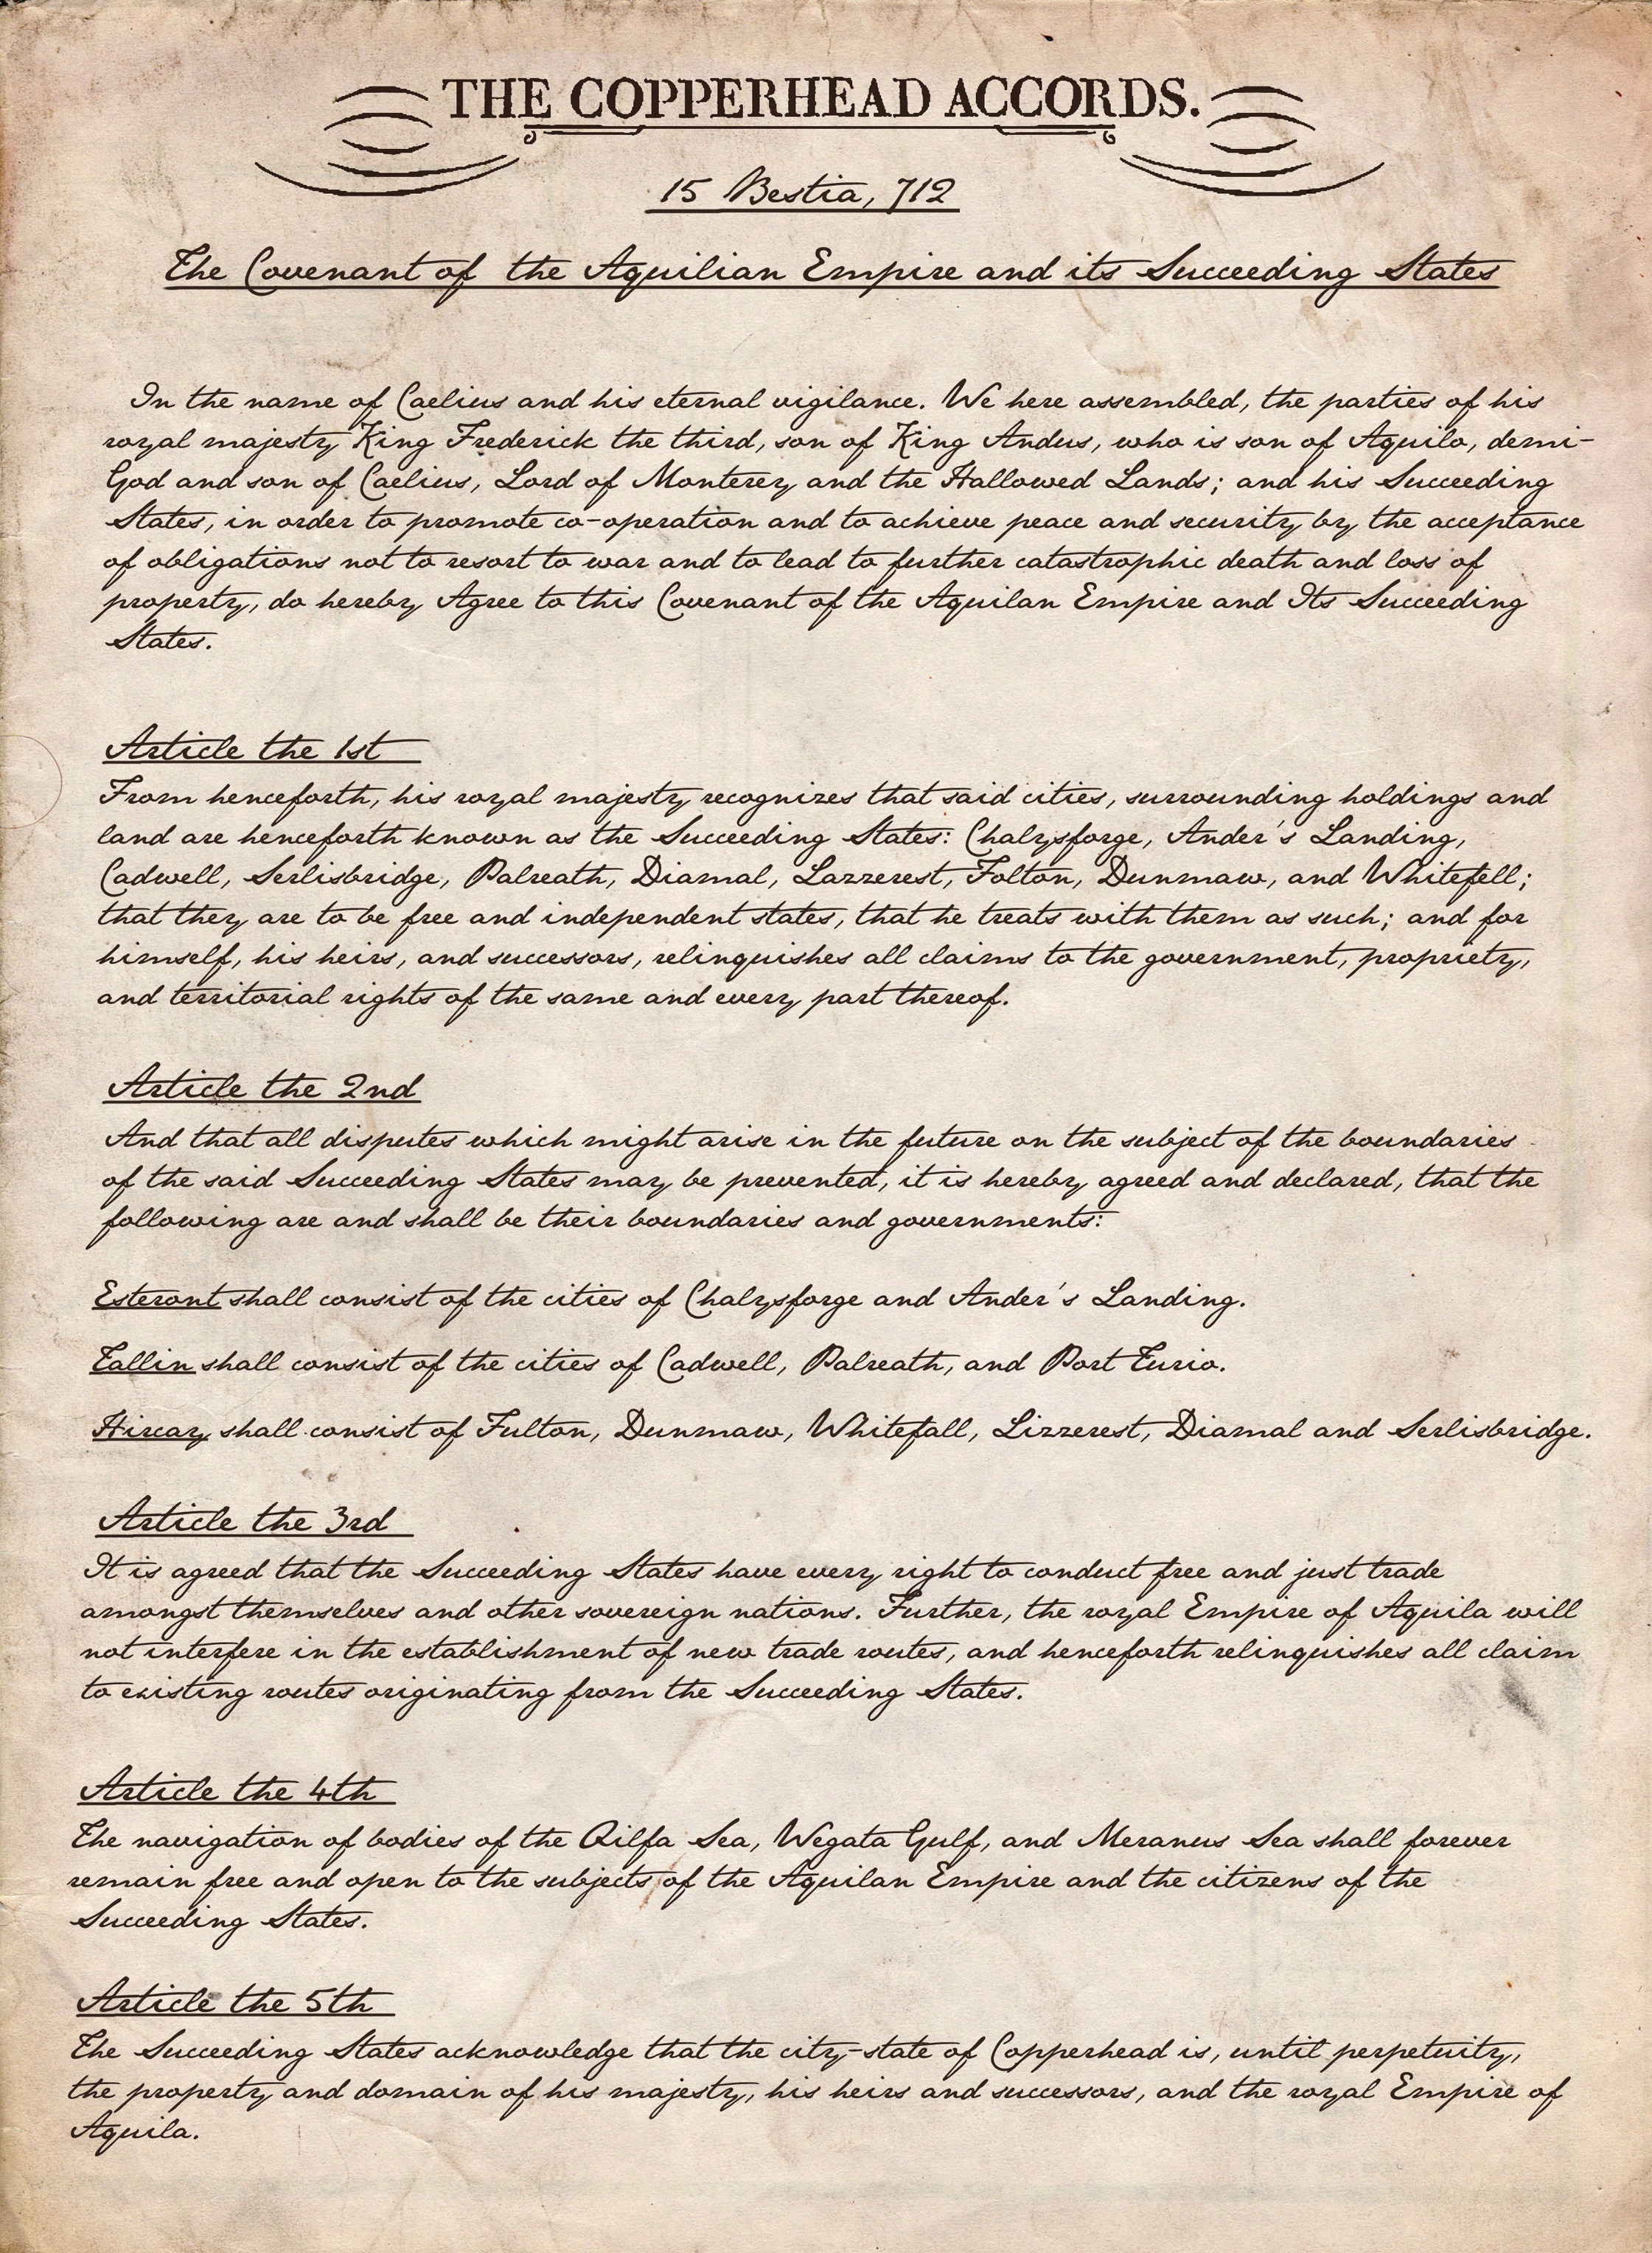 THE COPPERHEAD ACCORDS.
15 Bestia, 712
The Covenant of the Aquilian Empire and its Succeeding States
In the name of Caelius and his eternal vigilance. We here assembled, the parties of his
royal majesty King Frederick the third, son of King Andus, who is son of Aquila, demi-
God and son of Caelius, Lord of Monterey and the Hallowed Lands; and his Succeeding
States, in order to promote co-operation and to achieve peace and security by the acceptance
of obligations not to resort to war and to lead to further catastrophic death and loss of
property, do hereby Agree to this Covenant of the Aquilan Empire and Its Succeeding
States.
Article the 1st
From henceforth, his royal majesty recognizes that said cities, surrounding holdings and
land are henceforth known as the Succeeding States: Chalysforge, Ander's Landing,
Cadwell, Serlisbridge, Palreath, Diamal, Lazzerest, Folton, Dunmaw, and Whitefell;
that they are to be free and independent states, that he treats with them as such; and for
himself, his heirs, and successors, relinquishes all claims to the government, propriety,
and territorial rights of the same and every part thereof.
Article the 2nd
And that all disputes which might arise in the future on the subject of the boundaries
of the said Succeeding States may be prevented, it is hereby agreed and declared, that the
following are and shall be their boundaries and governments:
Esteront shall consist of the cities of Chalysforge and Ander's Landing.
Tallin shall consist of the cities of Cadwell, Palreath, and Port Turio.
Hircay shall consist of Fulton, Dunmaw, Whitefall, Lizzerest, Diamal and Serlisbridge.
Article the 3rd
It is agreed that the Succeeding States have every right to conduct free and just trade
amongst themselves and other sovereign nations. Further, the royal Empire of Aquila will
not interfere in the establishment of new trade routes, and henceforth relinquishes all claim
to existing routes originating from the Succeeding States.
Article the 4th
The navigation of bodies of the Qilfa Sea, Wegata Gulf, and Meranus Sea shall forever
remain free and open to the subjects of the Aquilan Empire and the citizens of the
Succeeding States.
Article the 5th
The Succeeding States acknowledge that the city-state of Copperhead is, until perpetuity,
the property and domain of his majesty, his heirs and successors, and the royal Empire of
Aquila.